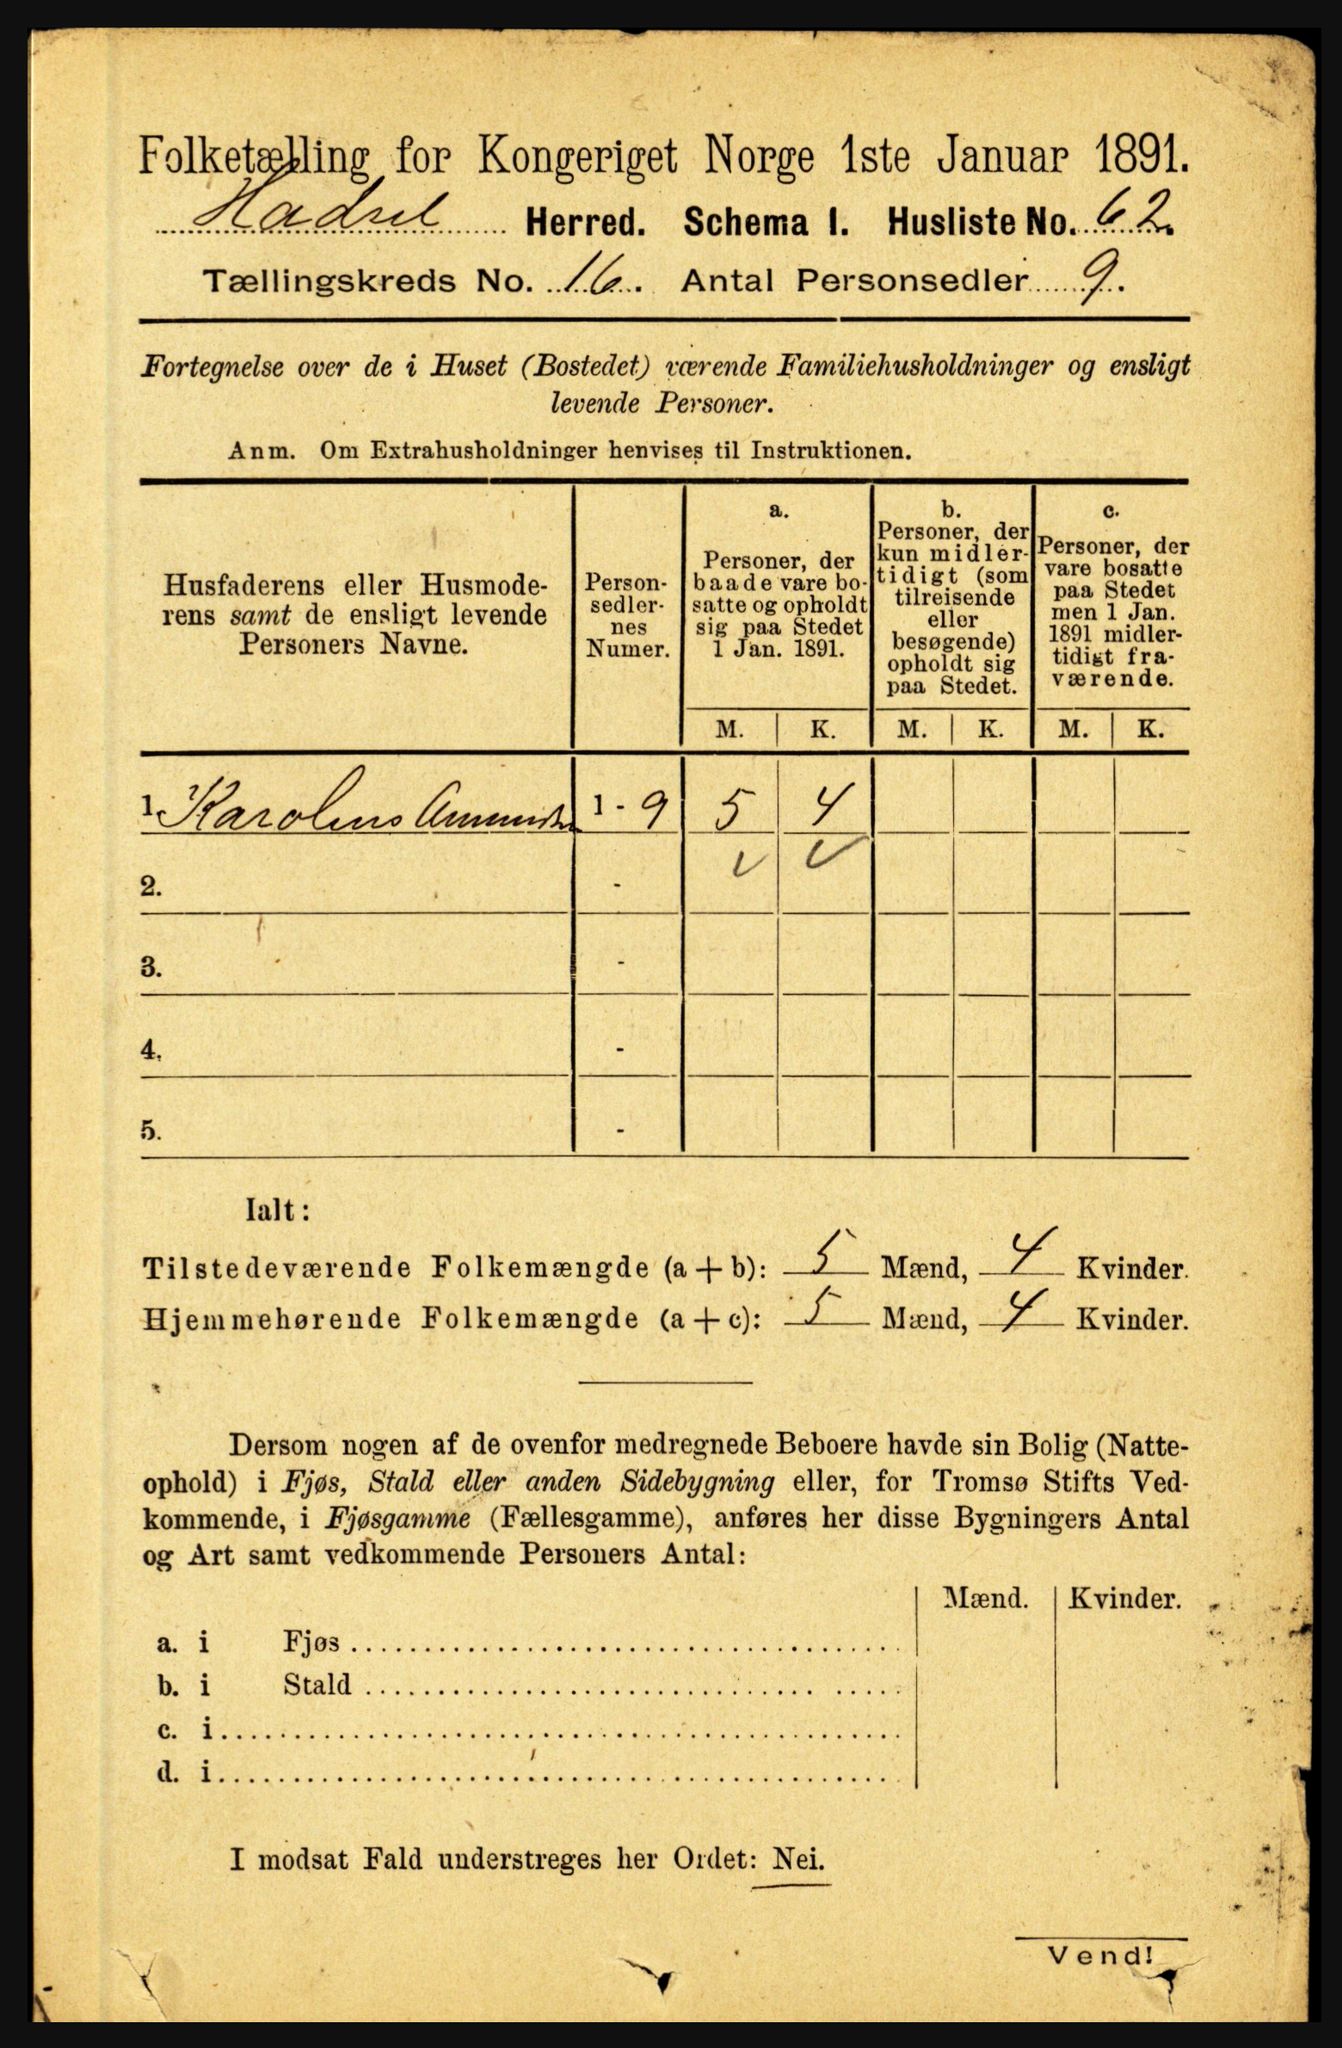 Folketælling for Kongeriget Norge 1ste Januar 1891.
Hadsel Herred. Schema I. Husliste No. 62.
Tællingskreds No. 16. Antal Personsedler 9.
Fortegnelse over de i Huset (Bostedet) værende Familiehusholdninger og ensligt
levende Personer.
Anm. Om Extrahusholdninger henvises til Instruktionen.
Husfaderens eller Husmode-
rens samt de ensligt levende
Personers Navne.
Person-
sedler-
nes
Numer.
a.
Personer, der
baade vare bo-
satte og opholdt
sig paa Stedet
1 Jan. 1891.
b.
Personer, der
kun midler-
tidigt (som
tilreisende
eller
besøgende)
opholdt sig
paa Stedet.
c.
Personer, der
vare bosatte
paa Stedet
men 1 Jan.
1891 midler-
tidigt fra-
værende.
M. K. M. K. M. K.
1. Karolius 1 - 9 5 4
2. -
3. -
4. -
5. -
Ialt:
Tilstedeværende Folkemængde (a + b): 5 Mænd, 4 Kvinder.
Hjemmehørende Folkemængde (a + c): 5 Mænd, 4 Kvinder.
Dersom nogen af de ovenfor medregnede Beboere havde sin Bolig (Natte-
ophold) i Fjøs, Stald eller anden Sidebygning eller, for Tromsø Stifts Ved-
kommende, i Fjøsgamme (Fællesgamme), anføres her disse Bygningers Antal
og Art samt vedkommende Personers Antal:
Mænd. Kvinder.
a. i Fjøs
b. i Stald
c. i
d. i
I modsat Fald understreges her Ordet: Nei.
Vend!